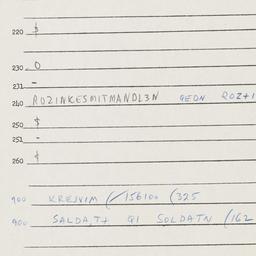 220 $
230 0
231 -
240 ROZINKESMITMANDL3N GEDN ROZ+I
250 $
251 -
260 $
900 KREJVIM (/156100 (325
900 SALDA,T+ GI SOLDATN (162